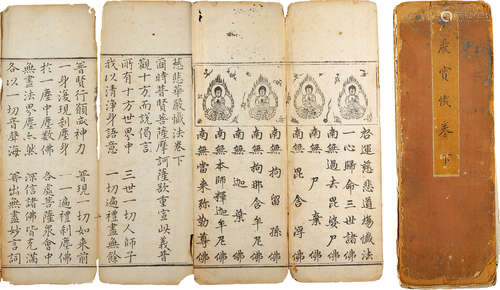 嚴寶懺卷下
啓運慈悲道塲懺法
一心歸命三世諸佛
南無過去毘婆尸佛
南無尸棄佛
南無毘舍浮佛
南無拘留孫佛
南無拘那含牟尼佛
南無迦葉佛
南無本師釋迦牟尼佛
南無當來彌勒尊佛
慈悲華嚴懺法卷下
爾時普賢菩薩摩訶薩欲重宣此義普
觀十方而說偈言
所有十方世界中 三世一切人師子
我以清淨身語意 一切遍禮盡無餘
普賢行願威神力 普現一切如來前
一身復現刹塵身 一一遍禮刹塵佛
於一塵中塵數佛 各處菩薩衆會中
無盡法界塵亦然 深信諸佛皆充滿
各以一切音聲海 普出無盡妙言詞